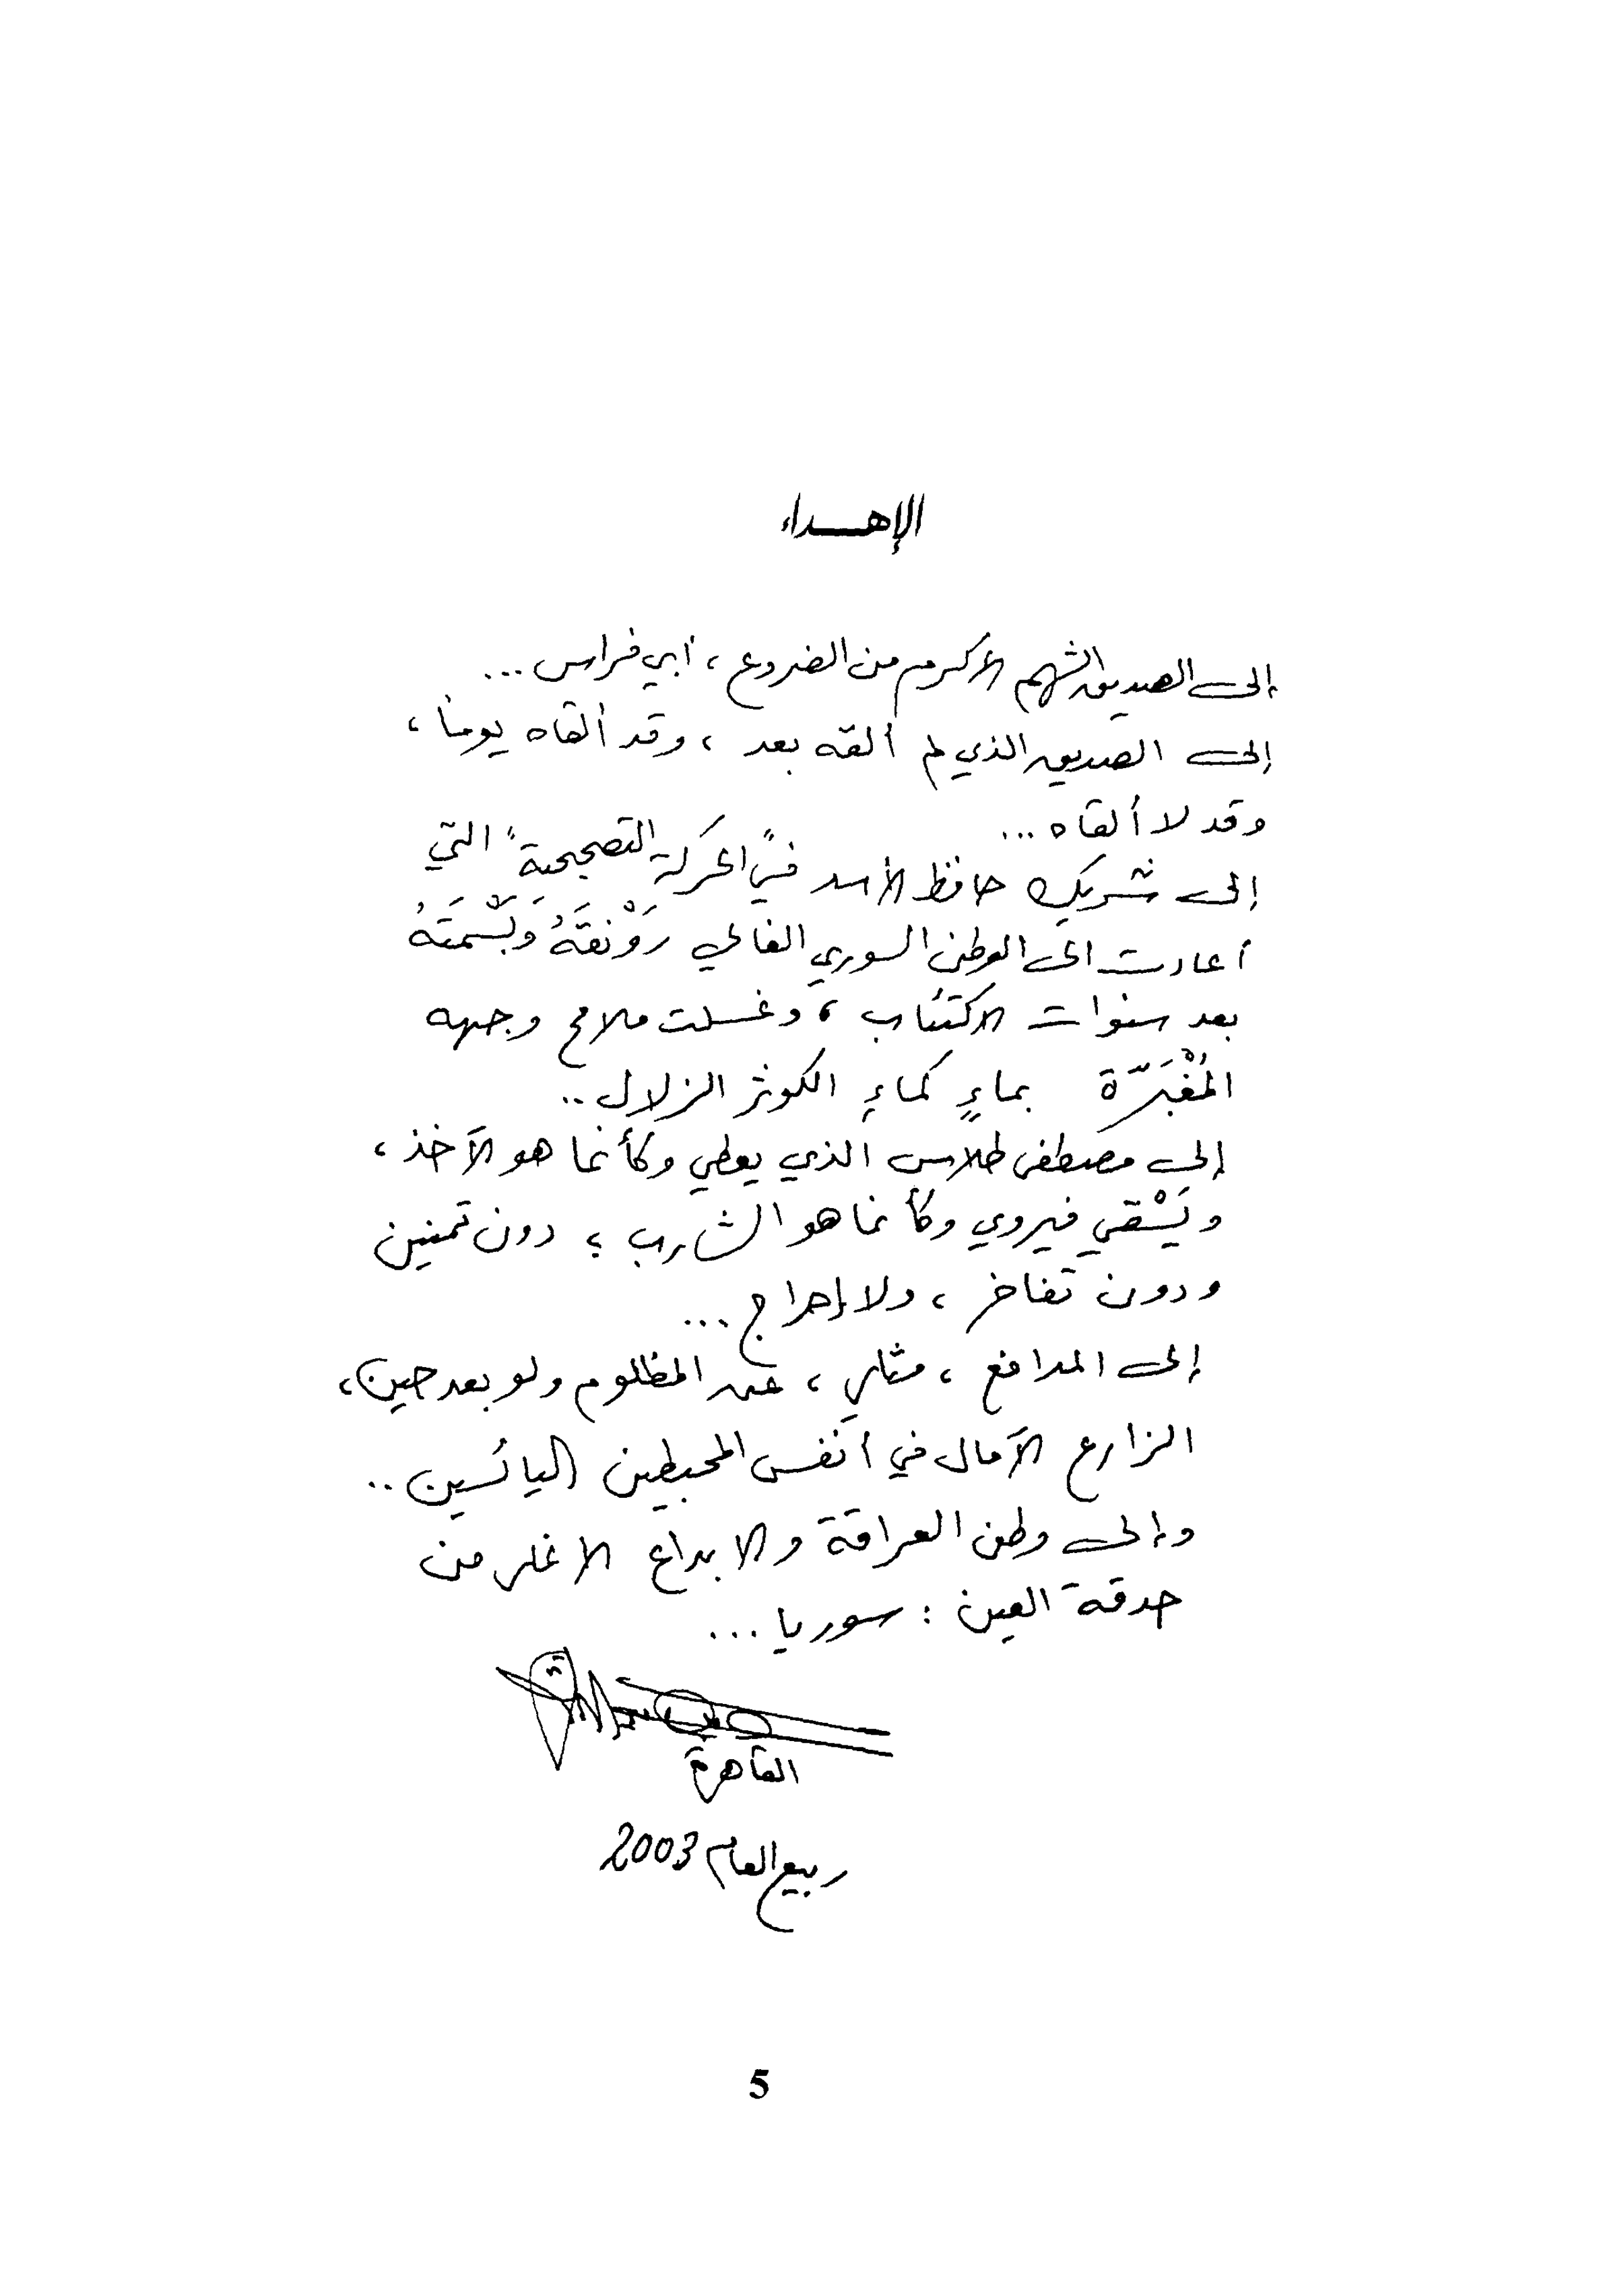 الإهداء
إلى الصديق الشهم الأكرم من الضروع ، أبي فراس ...
إلى الصديق الذي لم ألقه بعد ، وقد ألقاه يوماً ،
وقد لا ألقاه ...
إلى شريك حافظ الأسد في "الحركة التصحيحية" التي
أعادت الى الوطن السوري الغالي رَوْنقَهُ وَبَسْمَتَهُ
بعد سنوات الاكتئاب ، وغسلت ملامح وجهه
المُغْبَرّة بماءٍ كماءِ الكوثر الزلال ..
إلى مصطفى طلاس الذي يعطي وكأنما هو الآخذ ،
ويَسْقي فيروي وكأنما هو الشارب ؛ دون تمنين
ودون تفاخر ، ولا إحراج ...
إلى المدافع ، مثلي ، عن المظلوم ولو بعد حين ،
الزارع الآمال في أنفس المحبطين اليائسين ..
وإلى وطن العراقة والابداع الاغلى من
حدقة العين : سوريا ...
القاهرة
ربيع العام 2003
5